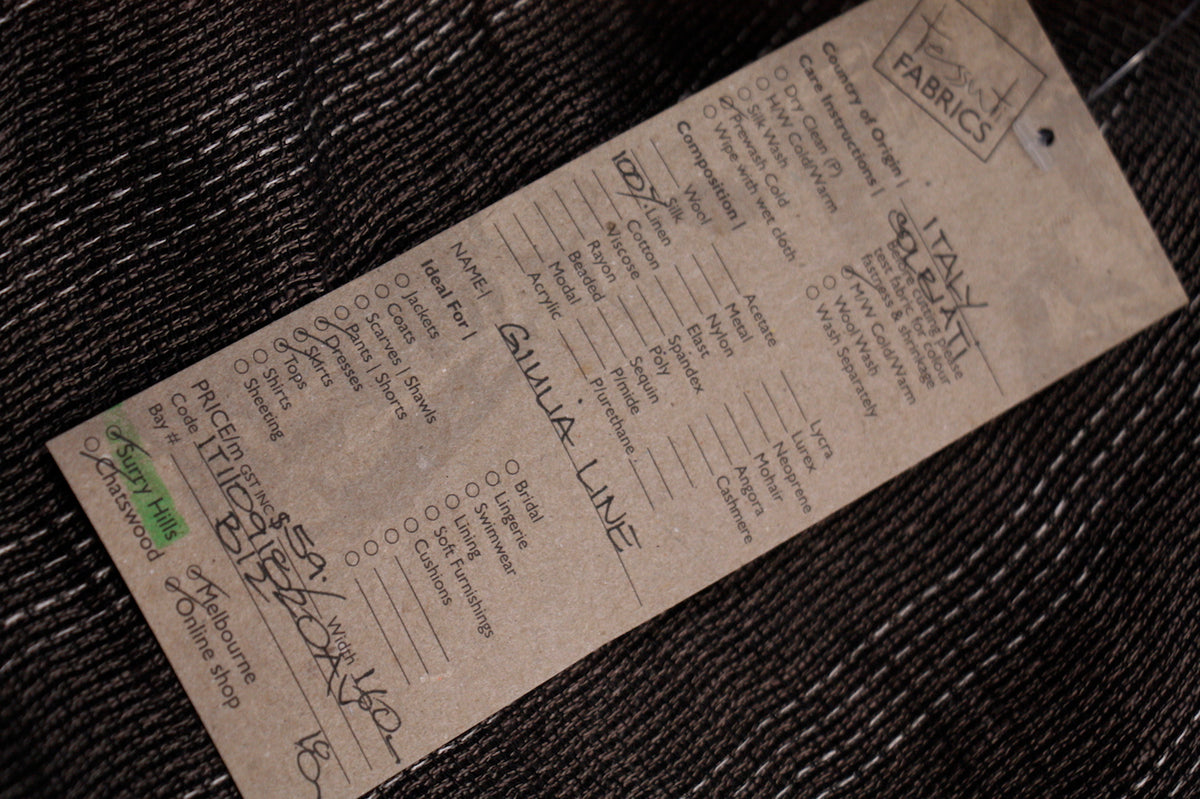 tessuti
FABRICS
Country of Origin | ITALY
Care Instructions | SOLBIATI
Dry Clean (P)
H/W Cold/Warm
Silk Wash
Prewash Cold
Wipe with wet cloth
Before cutting please
test fabric for colour
fastness & shrinkage
M/W Cold/Warm
Wool Wash
Wash Separately
Composition |
Wool
Silk
100% Linen
Cotton
Viscose
Rayon
Beaded
Modal
Acrylic
Acetate
Metal
Nylon
Elast
Spandex
Poly
Sequin
P/mide
P/urethane
Lycra
Lurex
Neoprene
Mohair
Angora
Cashmere
NAME | GIULIA LINE
Ideal For |
Jackets
Coats
Scarves | Shawls
Pants | Shorts
Dresses
Skirts
Tops
Shirts
Sheeting
Bridal
Lingerie
Swimwear
Lining
Soft Furnishings
Cushions
PRICE/m GST INC $59. Width 160
Code
Bay #
18
Surry Hills
Chatswood
Melbourne
Online shop